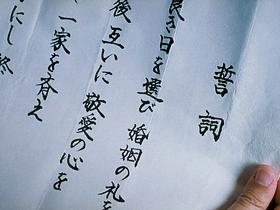 誓詞
良き日を選び 婚姻の礼を
後互いに 敬愛の心を
一家を斉え
にし終